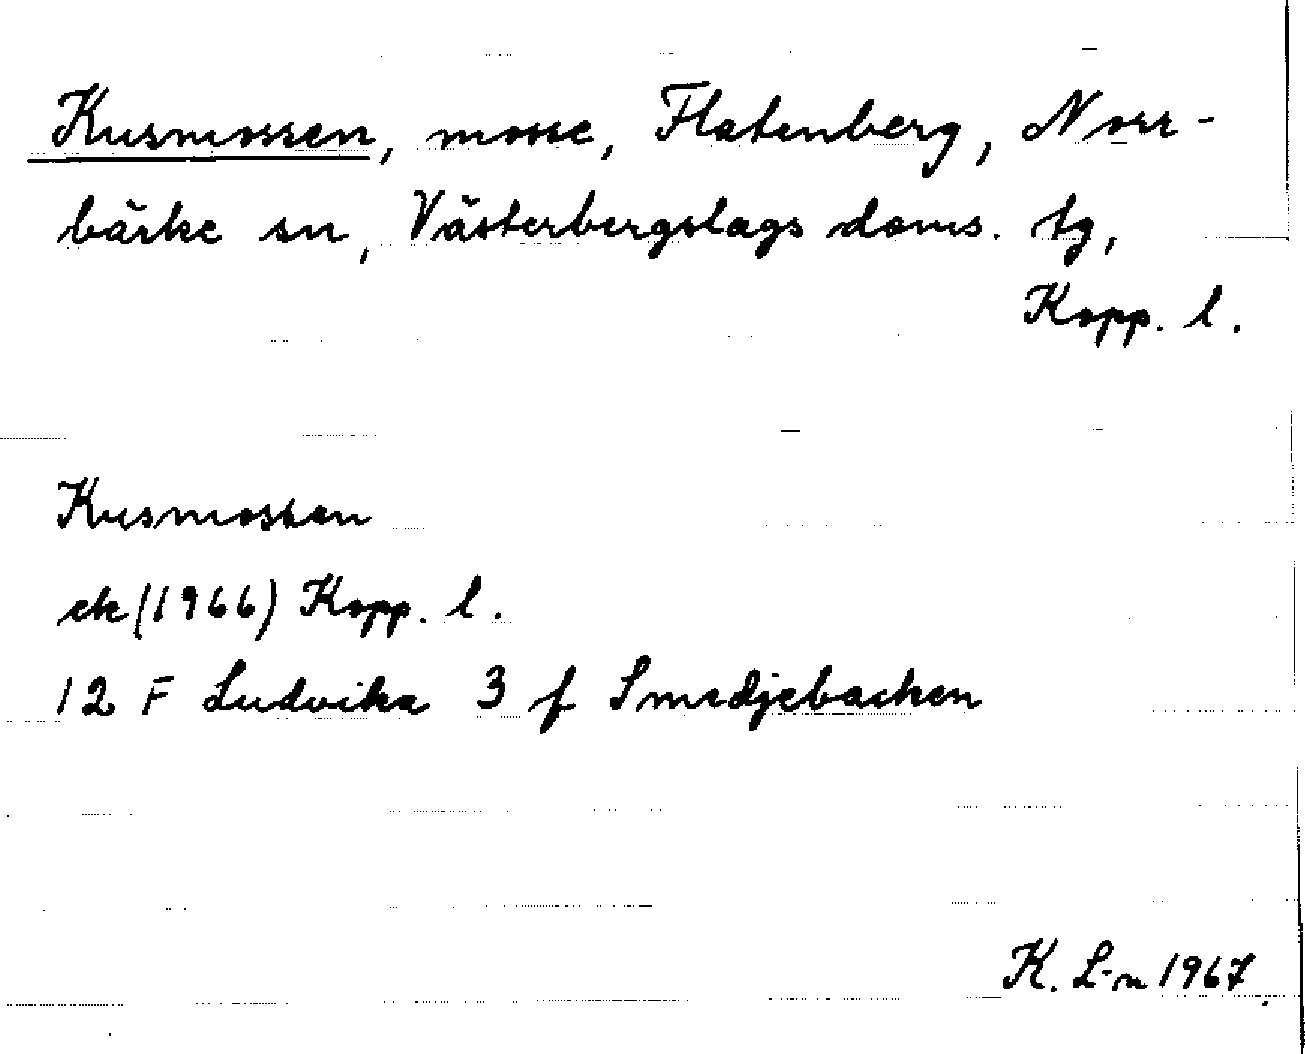 Kusmossen, mosse, Flatenberg, Norr-
bärke sn, Västerbergslags doms. tg,
Kopp. l.
Kusmossen
ek (1966) Kopp. l.
12 F Ludvika 3 f Smedjebacken
K. L-n 1967.